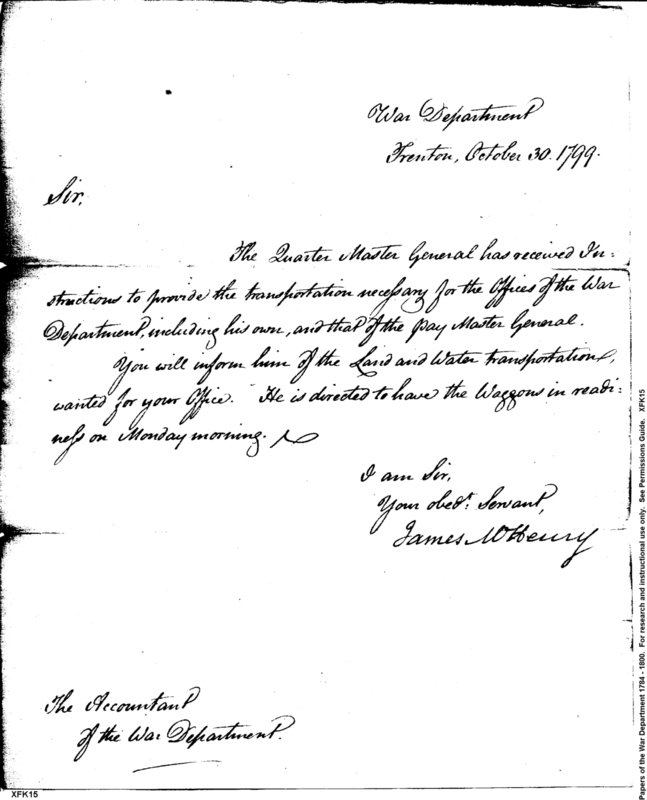 War Department
Trenton, October 30. 1799.
Sir,
The Quarter Master General has received In:
structions to provide the transportation necessary for the Offices of the War
Department, including his own, and that of the pay Master General.
You will inform him of the Land and Water transportation,
wanted for your Office. He is directed to have the Waggons in readi:
ness on Monday morning.
I am Sir,
Your obedt. Servant,
James McHenry
The Accountant
of the War Department.
XFK15
Papers of the War Department 1784 - 1800. For research and instructional use only. See Permissions Guide. XFK15